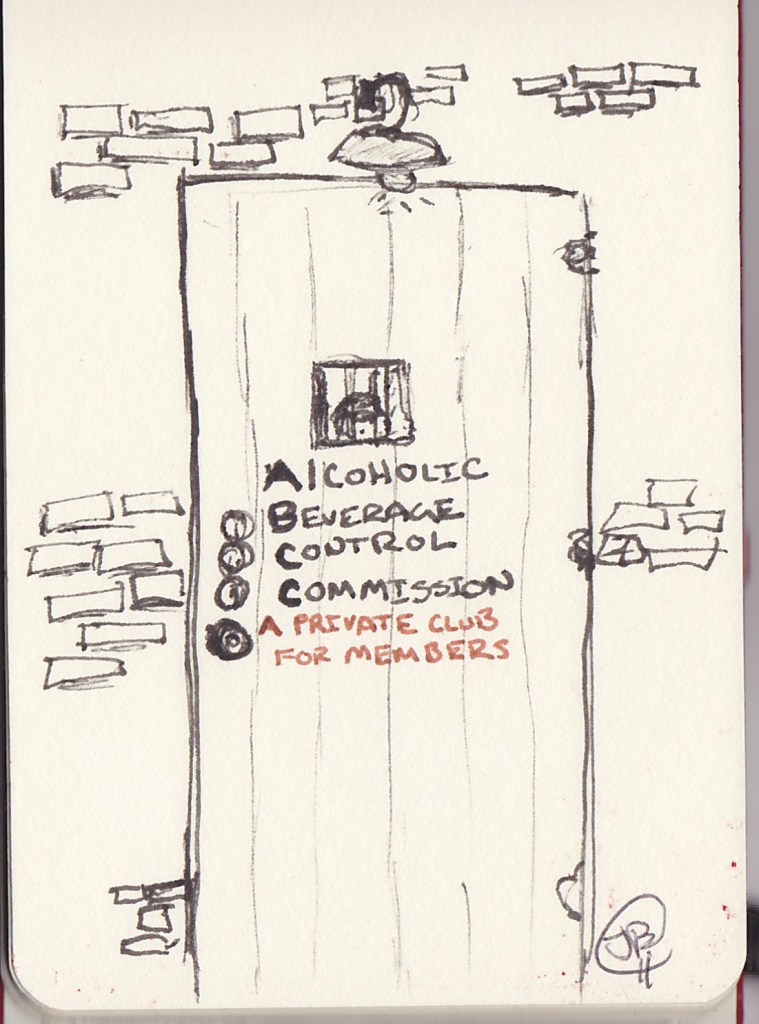 ALCOHOLIC
BEVERAGE
CONTROL
COMMISSION
A PRIVATE CLUB
FOR MEMBERS
JB